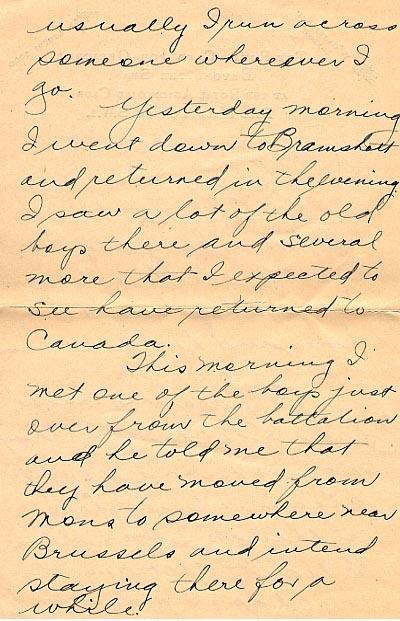 usually I run across
someone whereever I
go. Yesterday morning
I went down to Bramshott
and returned in the evening.
I saw a lot of the old
boys there and several
more that I expected to
see have returned to
Canada.
This morning I
met one of the boys just
over from the battalion
and he told me that
they have moved from
Mons to somewhere near
Brussels and intend
staying there for a
while.